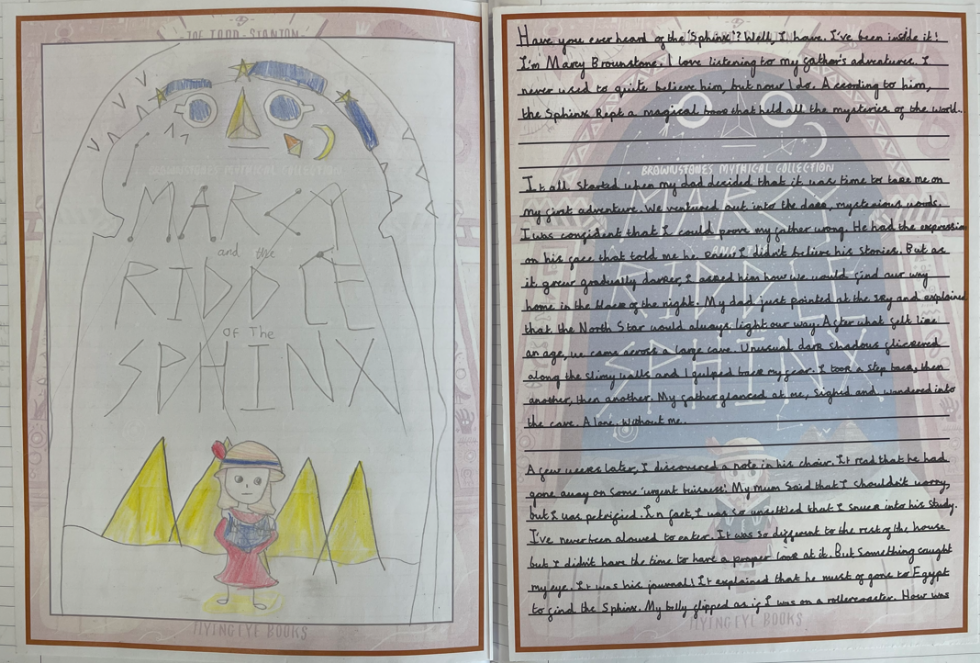 THE TODD-STANTON
BROWNSTONES MYTHICAL COLLECTION
MARCY
and the
RIDDLE
OF THE
SPHINX
FLYING EYE BOOKS
Have you ever heard of the 'Sphinx'? Well, I have. I've been inside it!
I'm Marcy Brownstone. I love listening to my father's adventures. I
never used to quite believe him, but now I do. According to him,
the Sphinx kept a magical book that held all the mysteries of the world.
BROWNSTONES MYTHICAL COLLECTION
It all started when my dad decided that it was time to take me on
my first adventure. We ventured out into the dark, mysterious woods.
I was confident that I could prove my father wrong. He had the expression
on his face that told me he knew I didn't believe his stories. But as
it grew gradually darker, I asked him how we would find our way
home in the black of the night. My dad just pointed at the sky and explained
that the North Star would always light our way. After what felt like
an age, we came across a large cave. Unusual dark shadows flickered
along the slimy walls and I gulped back my fear. I took a step back, then
another, then another. My father glanced at me, sighed and wandered into
the cave. Alone. Without me.
A few weeks later, I discovered a note in his chair. It read that he had
gone away on some 'urgent buisness'. My mum said that I shouldn't worry,
but I was petrified. In fact, I was so unsettled that I snuck into his study.
I've never been alowed to enter. It was so different to the rest of the house
but I didn't have the time to have a proper look at it. But something caught
my eye. It was his journal! It explained that he must of gone to Egypt
to find the Sphinx. My belly flipped as if I was on a rollercoaster. How was
FLYING EYE BOOKS